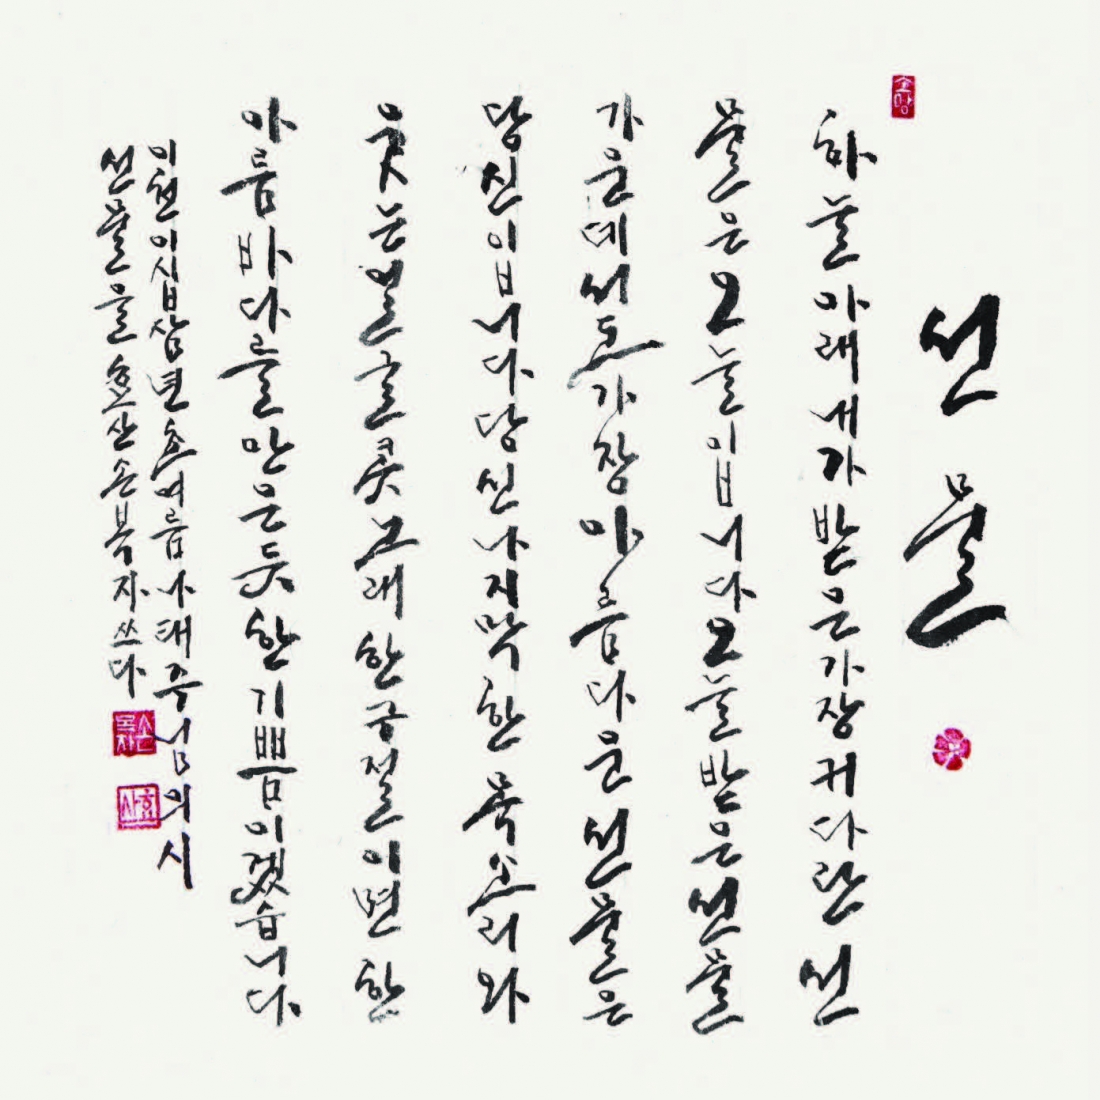 소망
선물
하늘 아래 내가 받은 가장 커다란 선
물은 오늘입니다 오늘 받은 선물
가운데서도 가장 아름다운 선물은
당신입니다 당신 나지막한 목소리와
웃는 얼굴 콧노래 한 구절이면 한
아름 바다를 안은 듯한 기쁨이겠습니다
이천이십삼년 초여름 나태주님의 시
선물을 효산 손복자 쓰다
손복자
효산